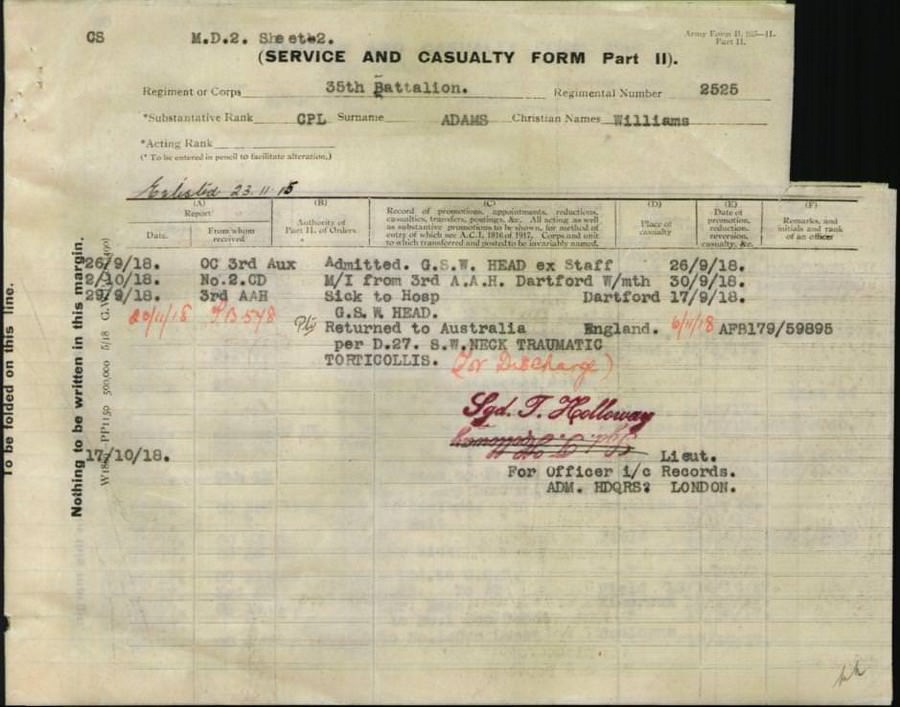 CS
M.D.2. Sheet2.
Army Form B. 103—II.
Part II.
(SERVICE AND CASUALTY FORM Part II).
Regiment or Corps 35th Battalion. Regimental Number 2525
*Substantative Rank CPL Surname ADAMS Christian Names Williams
*Acting Rank
(* To be entered in pencil to facilitate alteration.)
Enlisted 23.11.15
(A) (B) (C) (D) (E) (F)
Report
Date.
From whom
received
Authority of
Part II. of Orders
Record of promotions, appointments, reductions,
casualties, transfers, postings, &c. All acting as well
as substantive promotions to be shown, for method of
entry of which see A.C.I. 1816 of 1917. Corps and unit
to which transferred and posted to be invariably named.
Place of
casualty
Date of
promotion,
reduction,
reversion,
casualty, &c.
Remarks, and
initials and rank
of an officer
26/9/18. OC 3rd Aux Admitted. G.S.W. HEAD ex Staff 26/9/18.
2/10/18. No.2.CD M/I from 3rd A.A.H. Dartford W/mth 30/9/18.
29/9/18. 3rd AAH Sick to Hosp Dartford 17/9/18.
G.S.W. HEAD.
20/11/18 PB 548 Returned to Australia England. 6/11/18 AFB179/59895
per D.27. S.W.NECK TRAUMATIC
TORTICOLLIS. (for Discharge)
Sgd. T. Holloway
17/10/18. Lieut.
For Officer i/c Records.
ADM. HDQRS? LONDON.
To be folded on this line.
Nothing to be written in this margin.